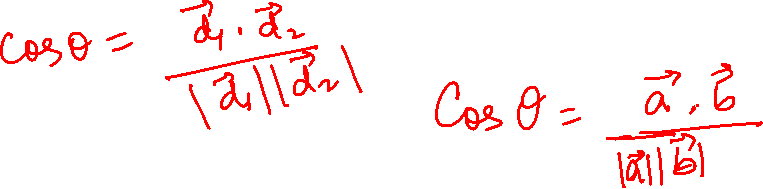 cosθ = \frac{\vec{d_1} \cdot \vec{d_2}}{|\vec{d_1}||\vec{d_2}|}
Cosθ = \frac{\vec{a} \cdot \vec{b}}{|\vec{a}||\vec{b}|}